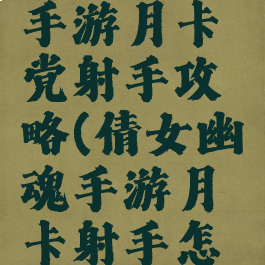 手游月卡
党射手攻
略(倩女幽
魂手游月
卡射手怎